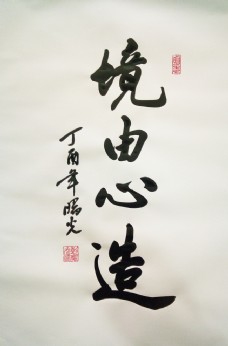 境由心造
丁酉年瑞光